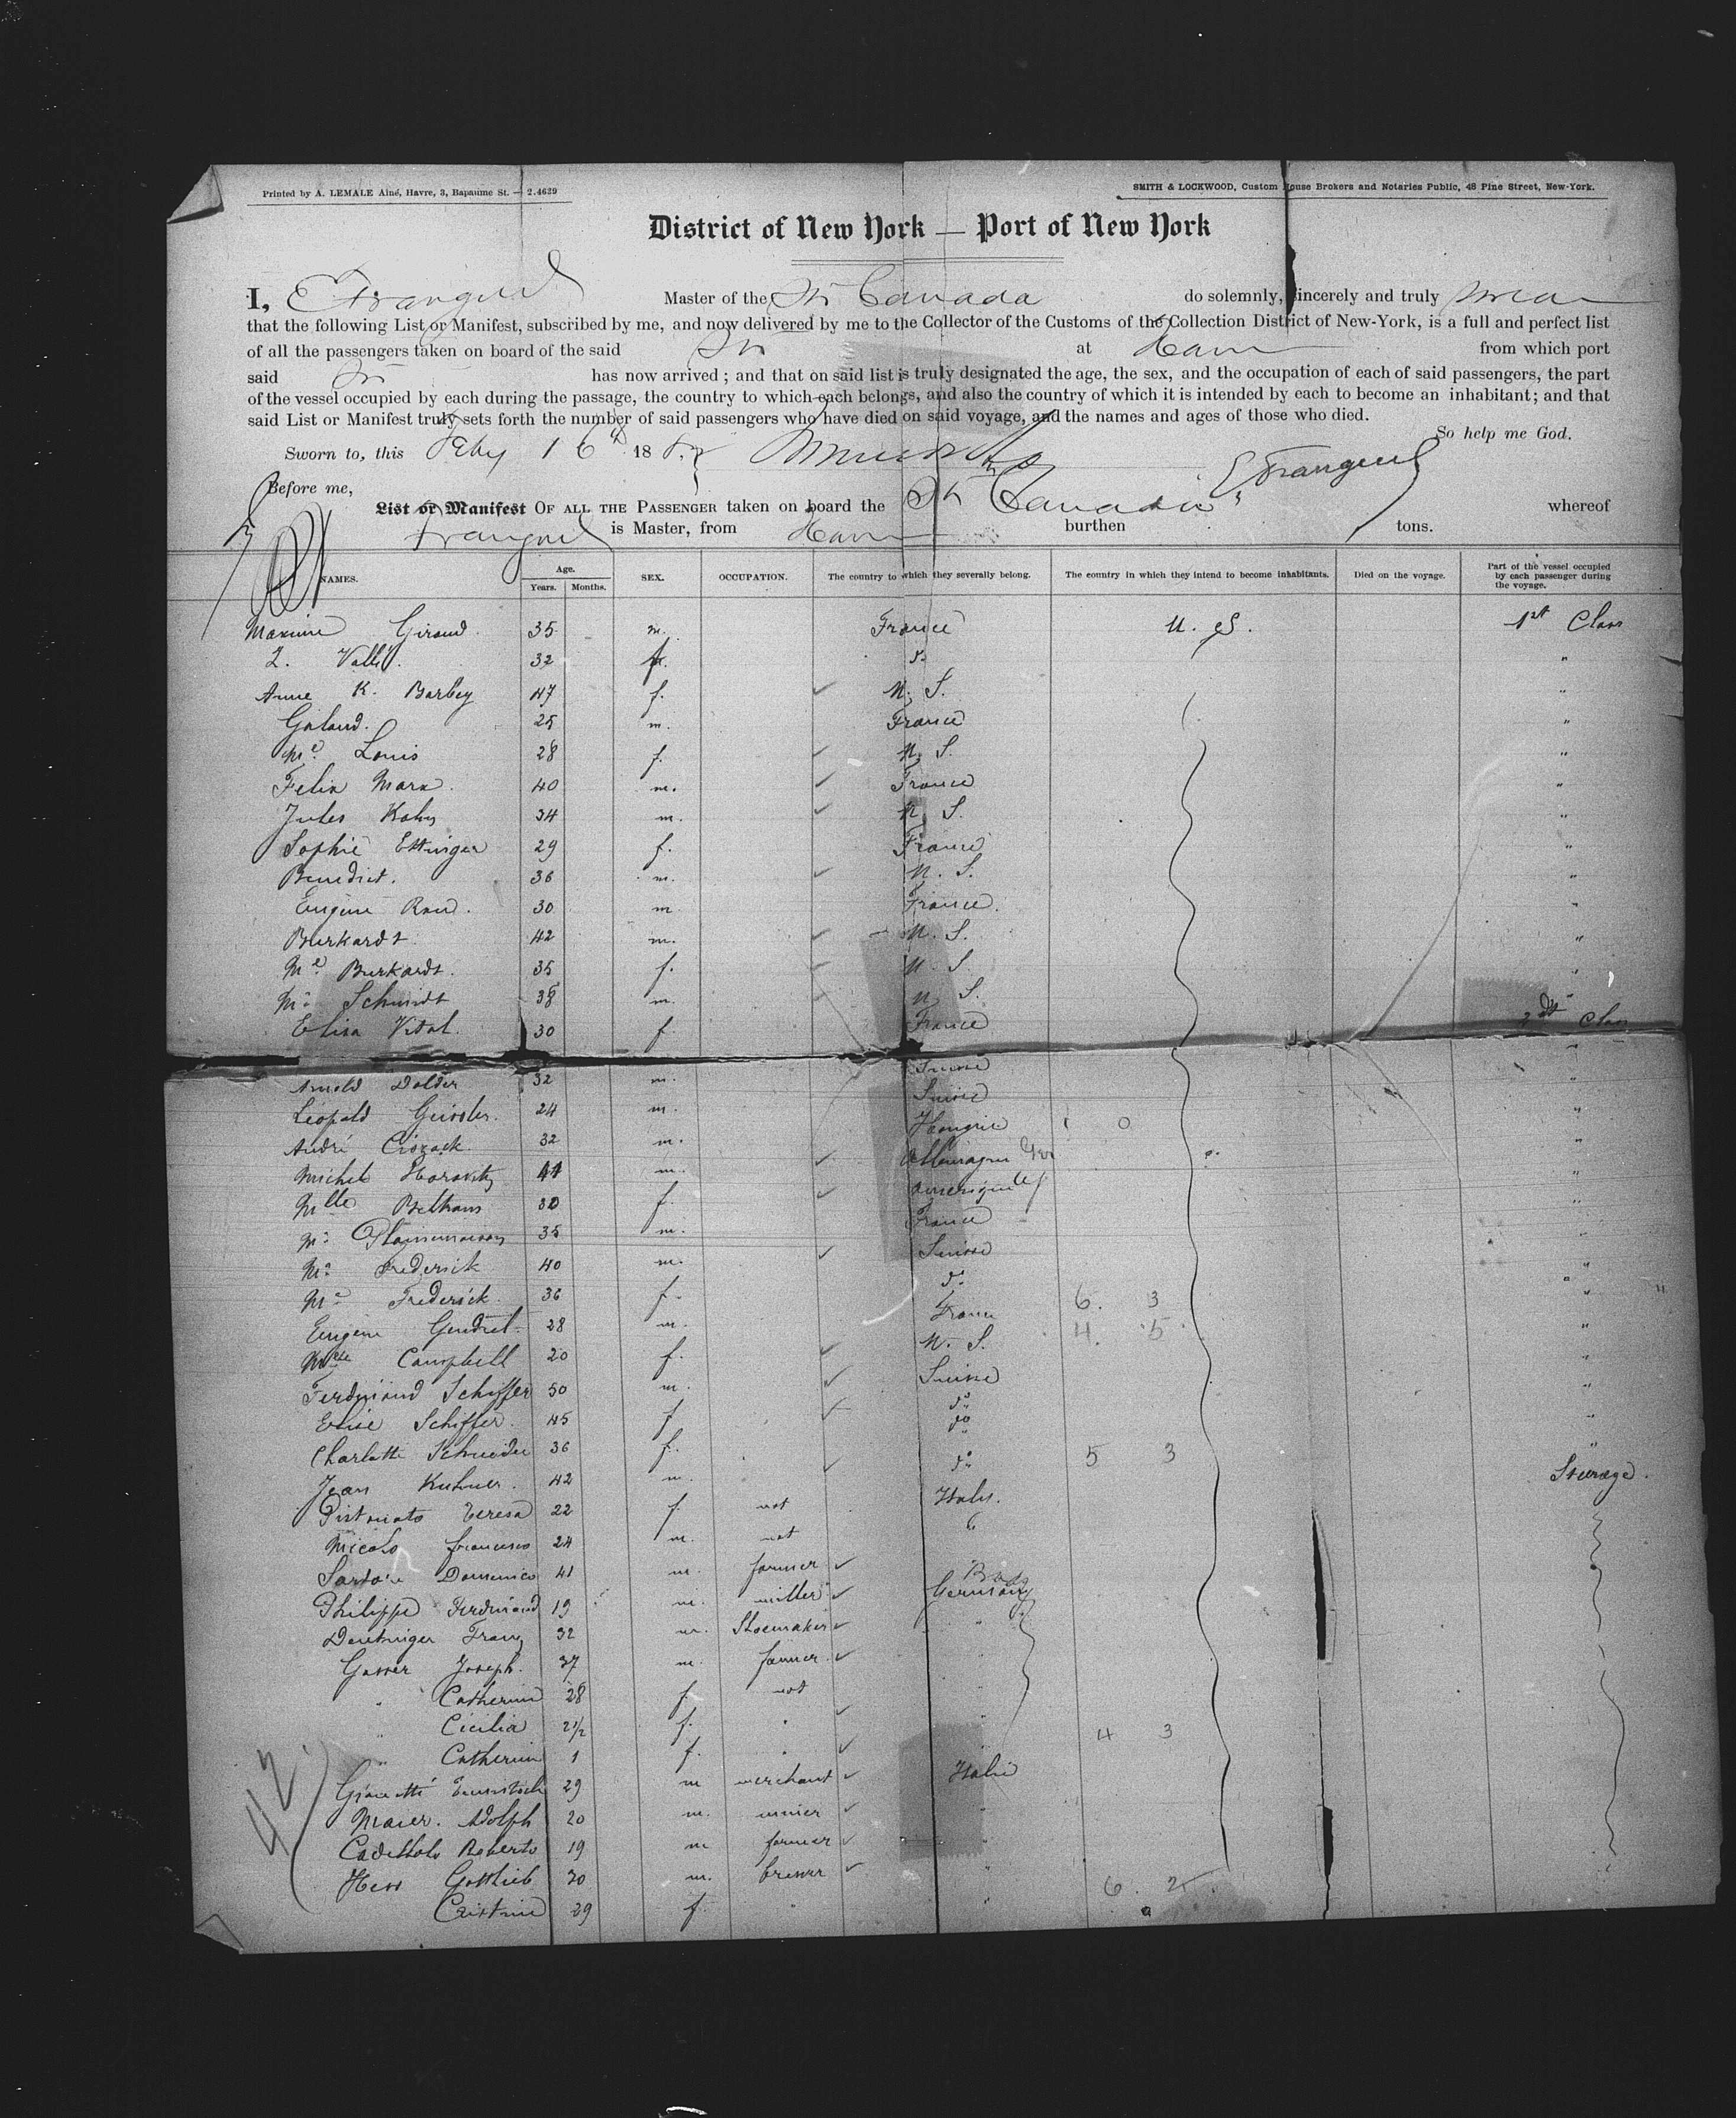 Printed by A. LEMALE Ainé, Havre, 3, Bapaume St. — 2.4629
SMITH & LOCKWOOD, Custom House Brokers and Notaries Public, 48 Pine Street, New-York.
District of New York — Port of New York
I, E Frangeul Master of the Str Canada do solemnly, sincerely and truly swear
that the following List or Manifest, subscribed by me, and now delivered by me to the Collector of the Customs of the Collection District of New-York, is a full and perfect list
of all the passengers taken on board of the said Str at Havre from which port
said Str has now arrived ; and that on said list is truly designated the age, the sex, and the occupation of each of said passengers, the part
of the vessel occupied by each during the passage, the country to which each belongs, and also the country of which it is intended by each to become an inhabitant ; and that
said List or Manifest truly sets forth the number of said passengers who have died on said voyage, and the names and ages of those who died.
So help me God.
Sworn to, this Feby 16th 188
E Frangeul
Before me,
List or Manifest OF ALL THE PASSENGER taken on board the Str Canada whereof
Frangeul is Master, from Havre burthen tons.
NAMES. Age. Years. Months. SEX. OCCUPATION. The country to which they severally belong. The country in which they intend to become inhabitants. Died on the voyage. Part of the vessel occupied by each passenger during the voyage.
Maxime Giraud. 35 m. France U. S. 1st Class
32 do "
Anne K. Barbey 47 f. U. S. "
Galand. 25 m. France "
Me. Louis 28 f. U. S. "
Felix Marx. 40 m. France "
Jules Kahn 34 m. U. S. "
Sophie Ettinger 29 f. France "
Benedict. 36 m. U. S. "
Eugene 30 m France. "
Burkardt 42 m. U. S. "
Me. Burkardt. 35 f. U. S. "
Mr. Schmidt 38 m. U. S. "
Elisa Vidal. 30 f. France 2d Class
Arnold Dolder 32 m. Suisse "
Léopold Geissler. 24 m. Suisse "
André 32 m. Hongrie 1 0 "
Michel Horovitz 41 m. Allemagne Ger "
Mlle Belhans 30 f. Amerique "
Mr. 35 m. France "
Mr. Frederick 40 m. Suisse "
Me. Frederick 36 f. do "
Eugène Gendrel. 28 m. France 6. 3 "
Mlle Campbell 20 f. U. S. 4. 5 "
Ferdinand Schiffer 50 m. Suisse "
Elise Schiffer. 45 f do "
Charlotte Schneider 36 f. do "
Jean Kuhner. 42 m. do 5 3 "
Teresa 22 f. not Italy. Steerage.
Francesco 24 m. not "
Domenico 41 m. farmer
Philippe Ferdinand 19 m. miller Germany
Franz 32 m. Shoemaker "
Gasser Joseph. 37 m. farmer "
" Catherine 28 f. not
" Cicilia 2 1/2 f. "
" Catherine 1 f. " 4 3
29 m merchant Italie
Maier. Adolph 20 m.
Roberto 19 m farmer
Hess Gottlieb 30 m. brewer "
Cristine 29 f. " " 6. 2
42